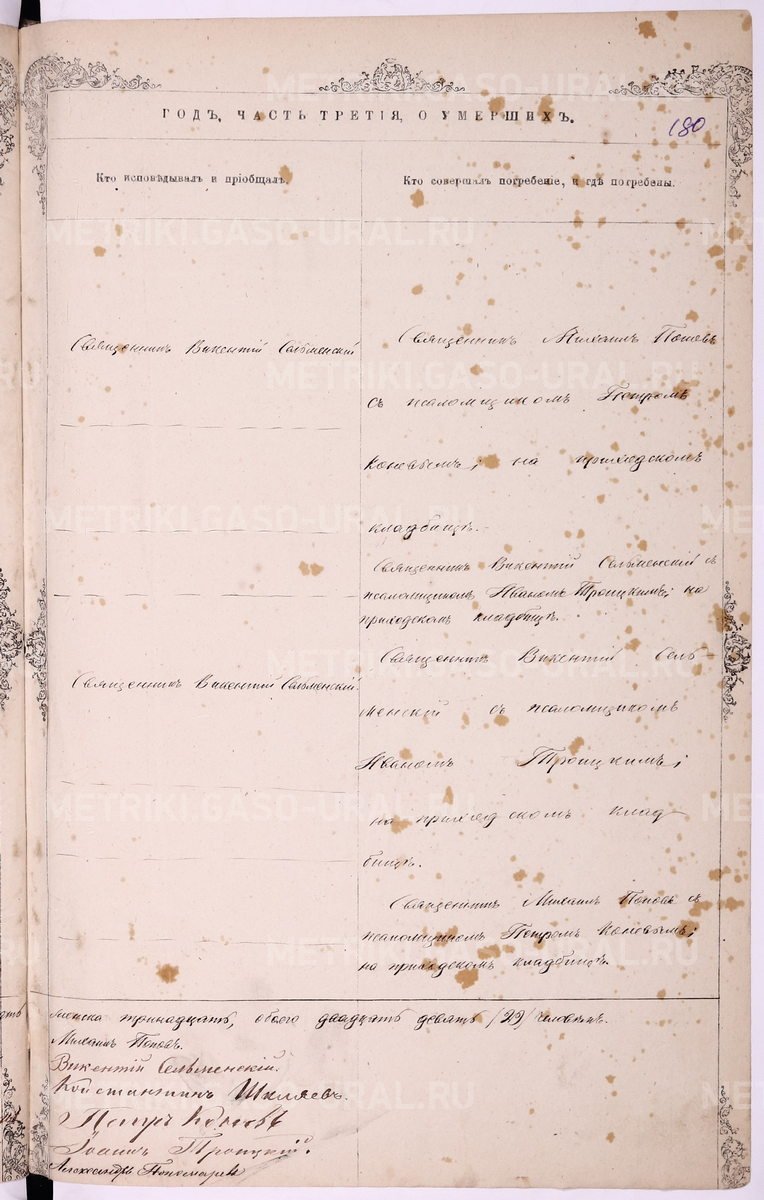 ГОДЪ, ЧАСТЬ ТРЕТІЯ, О УМЕРШИХЪ.
180
Кто исповѣдывалъ и пріобщалъ.
Кто совершалъ погребеніе, и гдѣ погребены.
Священникъ Викентій Сельменскій
Священникъ Викентій Сельменскій.
Священникъ Михаилъ Поповъ
съ псаломщикомъ Петромъ
Коневымъ; на приходскомъ
кладбищѣ.
Священникъ Викентій Сельменскій съ
псаломщикомъ Иваномъ Троицкимъ; на
приходскомъ кладбищѣ.
Священникъ Викентій Сель
менскій съ псаломщикомъ
Иваномъ Троицкимъ;
на приходскомъ клад
бищѣ.
Священникъ Михаилъ Поповъ съ
псаломщикомъ Петромъ Коневымъ;
на приходскомъ кладбищѣ.
женска тринадцать, обоего двадцать девять /29/ человѣкъ.
Михаилъ Поповъ.
Викентій Сельменскій.
Константинъ Шиляевъ.
Петръ Коневъ
Іоаннъ Троицкій.
Александръ Пономаревъ
METRIKI.GASO-URAL.RU